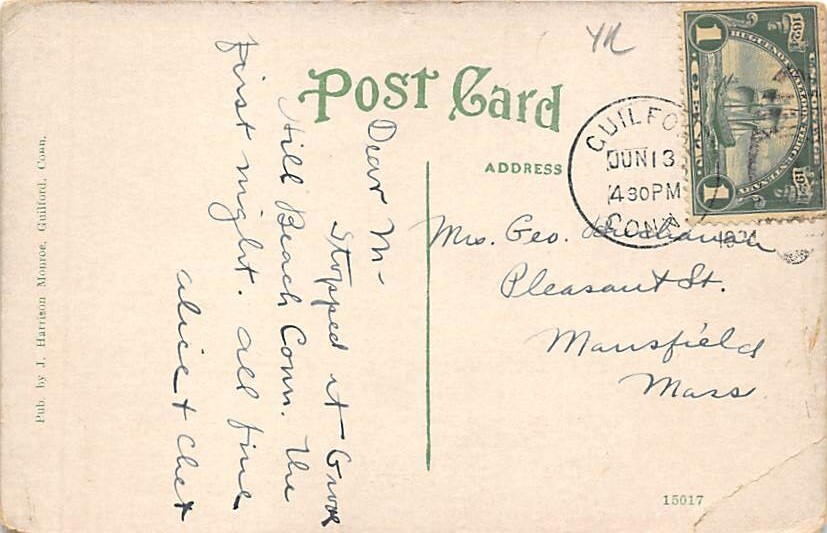 YR
Post Card
ADDRESS
GUILFO
JUN 13
4 30 PM
CONN
1924
1624 1924
HUGUENOT WALLOON TERCENTENARY
1 1
Dear M-
Stopped at Grove
Hill Beach Conn. The
first night. all fine
alice + Chet
Mrs. Geo.
Pleasant St.
Mansfield
Mass.
Pub. by J. Harrison Monroe, Guilford, Conn.
15017